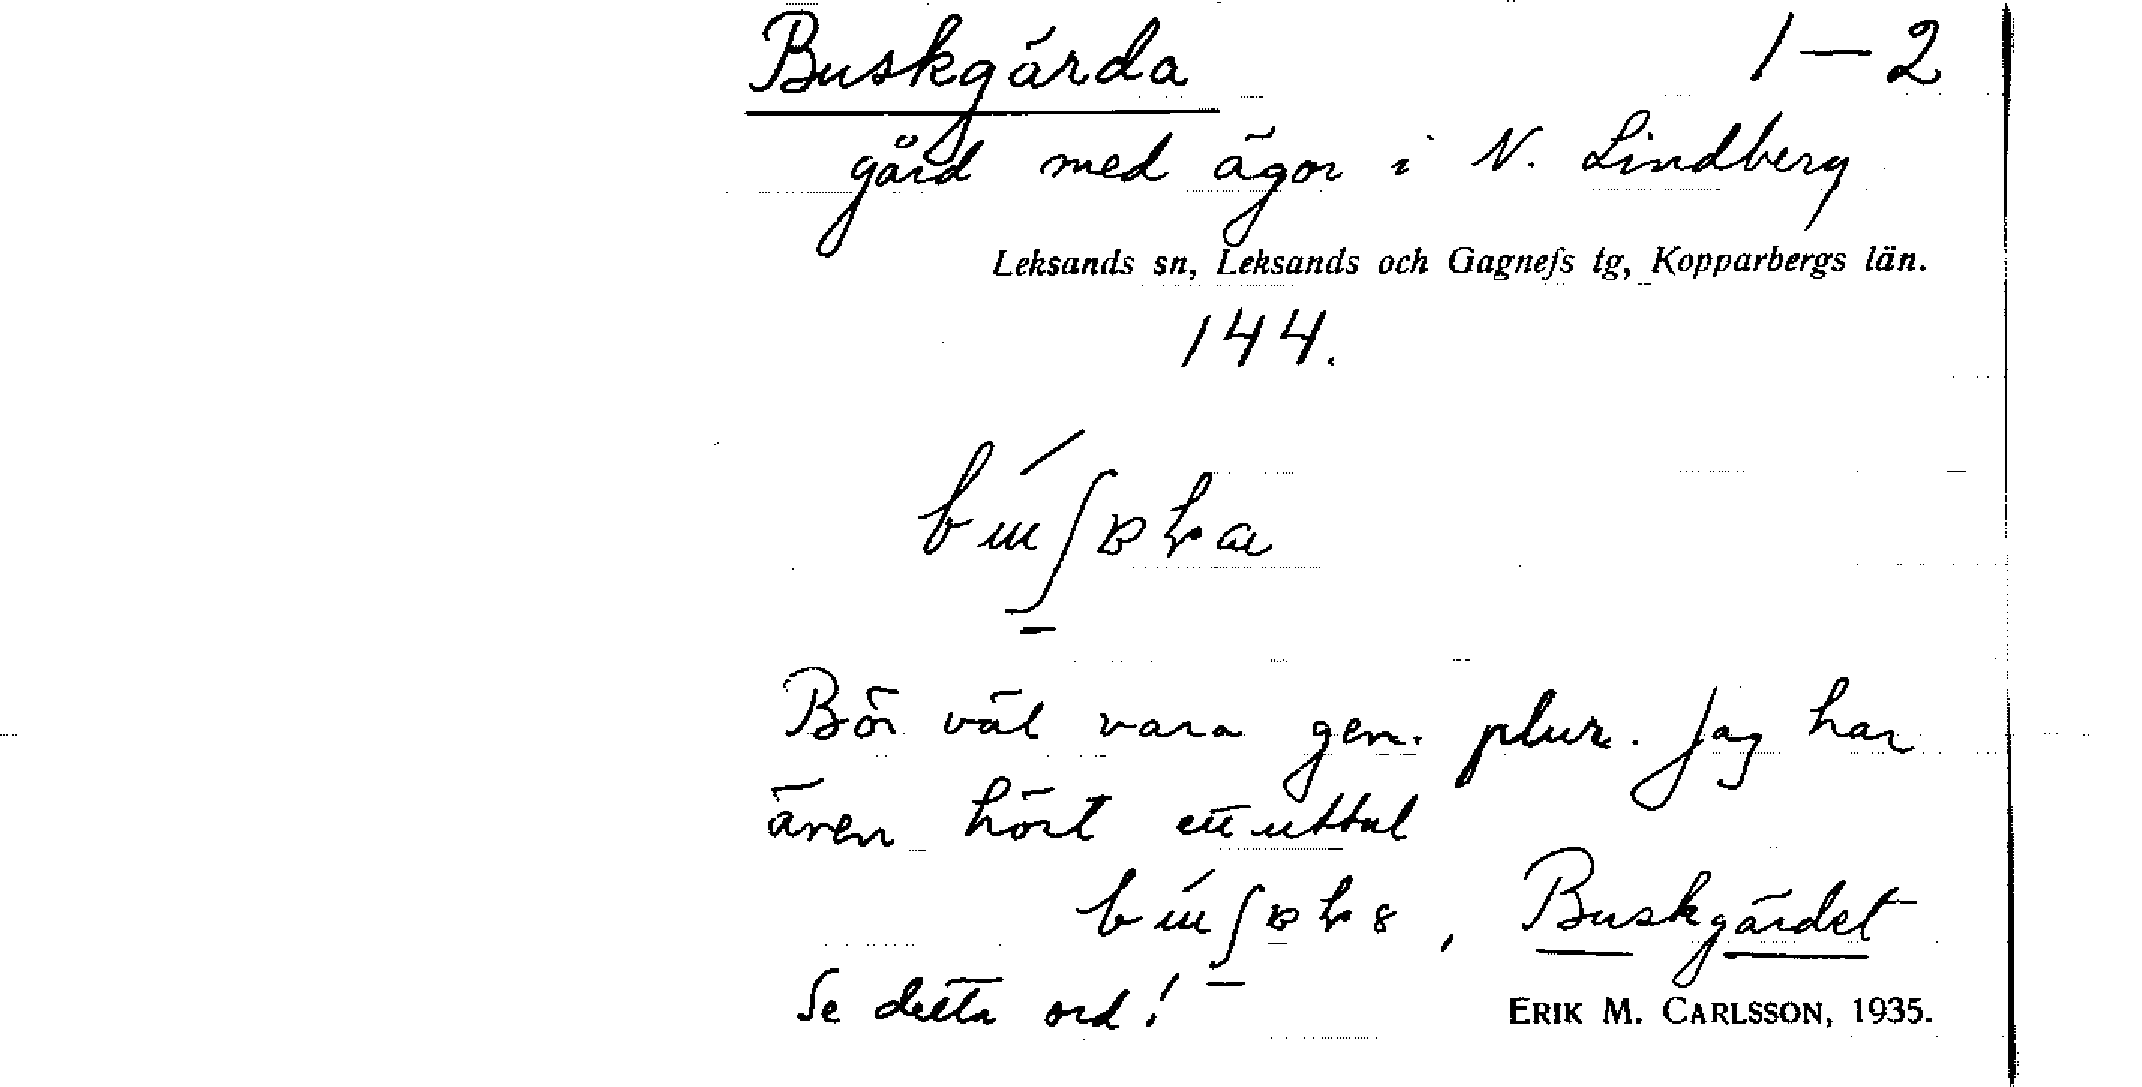 Buskgärda 1–2
gård med ägor i N. Lindberg
Leksands sn, Leksands och Gagnefs tg, Kopparbergs län.
144.
Bör väl vara gen. plur. Jag har
även hört ett uttal
, Buskgärdet
Se detta ord!
ERIK M. CARLSSON, 1935.